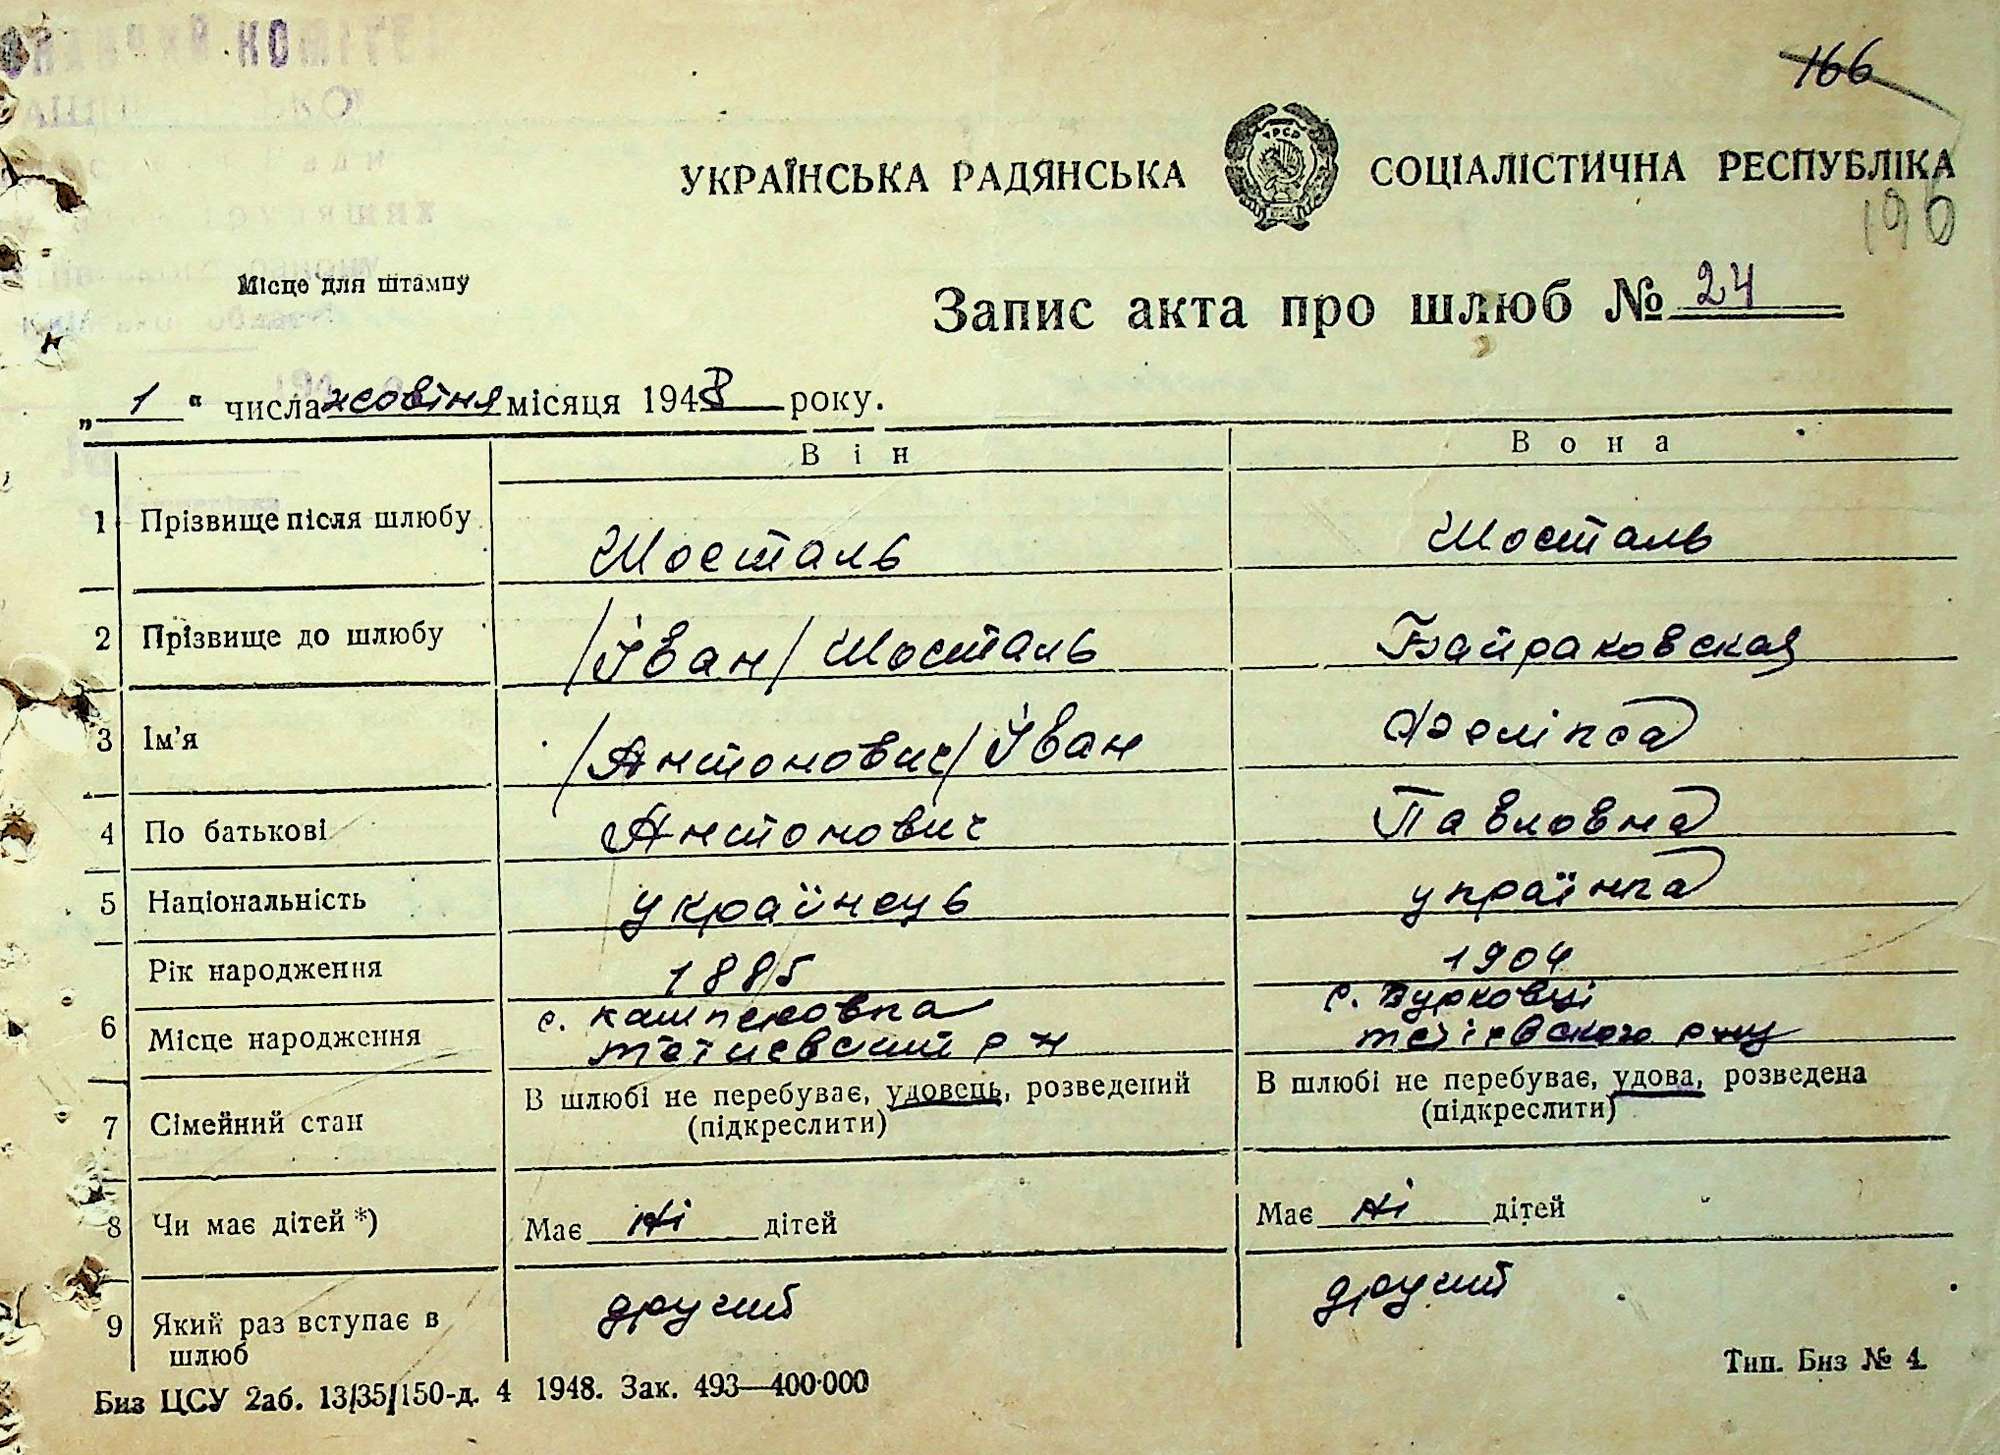 166
УКРАЇНСЬКА РАДЯНСЬКА СОЦІАЛІСТИЧНА РЕСПУБЛІКА
196
Місце для штампу
Запис акта про шлюб № 24
„ 1 “ числа жовтня місяця 1948 року.
Він Вона
1 Прізвище після шлюбу Шосталь Шосталь
2 Прізвище до шлюбу /Іван/ Шосталь Байраковская
3 Ім'я /Антонович/ Іван
4 По батькові Антонович Павловна
5 Національність українець українка
Рік народження 1885 1904
6 Місце народження с. Кашперовка с.
тетиевский р-н
7 Сімейний стан В шлюбі не перебуває, удовець, розведений В шлюбі не перебуває, удова, розведена
(підкреслити) (підкреслити)
8 Чи має дітей *) Має ні дітей Має ні дітей
9 Який раз вступає в другий другий
шлюб
Биз ЦСУ 2аб. 13/35/150-д. 4 1948. Зак. 493—400·000 Тип. Биз № 4.